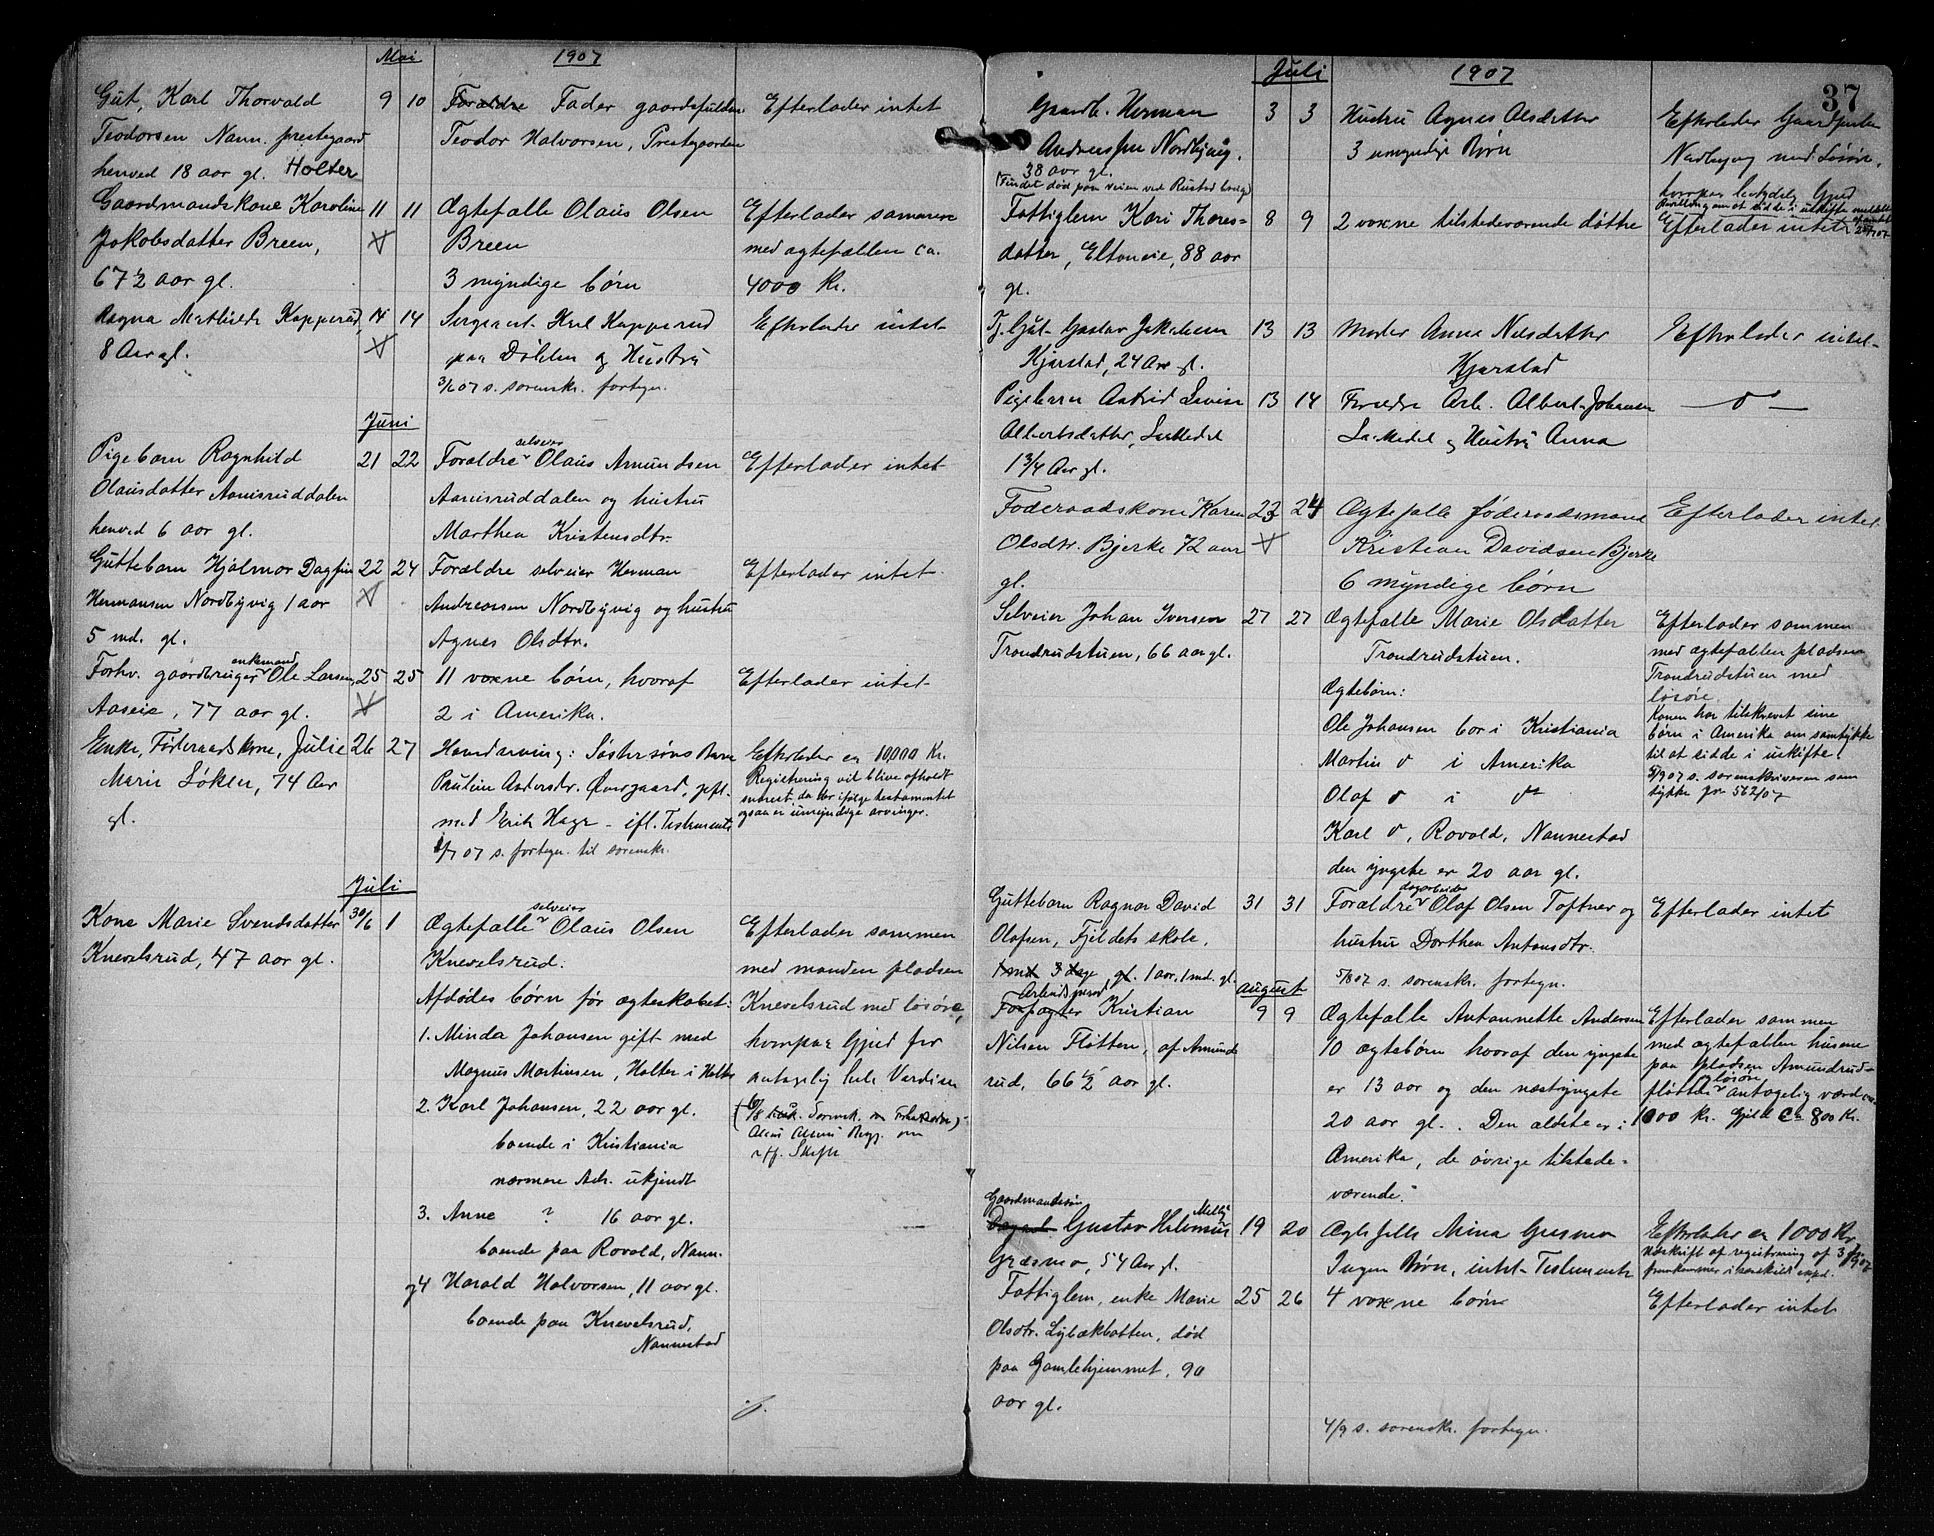 Mai
1907
Gut, Karl Thorvald
9 10
Forældre Fader gaardsfuldm
Efterlader intet
Teodorsen Nann. prestegaard
Teodor Halvorsen, Prestegaarden
henved 18 aar gl. Holter
Gaardmandskone Karoline
11 11
Ægtefælle Olaus Olsen
Efterlader sammen
Jakobsdatter Breen,
Breen
med ægtefællen ca.
67 1/2 aar gl.
3 myndige børn
4000 Kr.
Ragna Mathilde Kopperud
14 14
Sergeant Karl Kopperud
Efterlader intet
8 Aar gl.
paa Døhlen og Hustru
3/6 07 s. sorenskr. fortegn.
Juni
Pigebarn Ragnhild
21 22
selveier
Forældre Olaus Amundsen
Efterlader intet
Olausdatter Aamisruddalen
Aamisruddalen og hustru
henved 6 aar gl.
Marthea Kristensdtr.
Guttebarn Hjalmar Dagfin
22 24
Forældre selveier Herman
Efterlader intet
Hermansen Nordbyvig 1 aar
Andreassen Nordbyvig og hustru
5 md. gl.
Agnes Olsdtr.
enkemand
Forhv. gaardbruger Ole Larsen
25 25
11 voxne børn, hvoraf
Efterlader intet
Aaseie, 77 aar gl.
2 i Amerika.
Enke, Føderaadskone, Julie
26 27
Hovedarving: Søstersøns Barn
Efterlader ca 10,000 Kr.
Marie Løken, 74 Aar
Pauline Andersdr. Overgaard, gift
Registrering vil blive afholdt
snarest, da der ifølge testamentet
gl.
med Erik Haga - ifl. Testamente
ogsaa er umyndige arvinger.
1/7 07 s. fortegn. til sorenskr.
Juli
Kone Marie Svendsdatter
30/6 1
selveier
Ægtefælle Olaus Olsen
Efterlader sammen
Knevelsrud, 47 aar gl.
Knevelsrud.
med manden pladsen
Afdødes børn før ægteskabet:
Knevelsrud med løsøre,
1. Minda Johansen gift med
hvorpaa Gjæld før
Magnus Martinsen, Holter i Holter
antagelig hele Værdien
2. Karl Johansen, 22 aar gl.
boende i Kristiania
nærmere Adr. ukjendt
3. Anne ? 16 aar gl.
boende paa Rovold, Nann.
og 4 Harald Halvorsen, 11 aar gl.
boende paa Knevelsrud,
Nannestad
37
Juli
1907
Gaardb. Herman
3 3
Hustru Agnes Olsdatter
Efterlader Gaardparten
Andreassen Nordbyvig.
3 umyndige Børn
Nordbyvig med Løsøre,
38 aar gl.
(Fundet død paa veien ved Rustad bolig)
hvorpaa betydelig Gjæld
Bevilling om at sidde i uskifte meddelt
Fattiglem Kari Thores-
8 9
2 voxne tilstedeværende døttre
Efterlader intet
datter, Eltoneie, 88 aar
gl.
Tj. Gut Gustav Jakobsen
13 13
Moder Anna Nilsdatter
Efterlader intet
Kjærstad, 24 Aar gl.
Kjærstad
Pigebarn Astrid Lovise
13 14
Forældre Arb. Albert Johansen
— d° —
Albertsdatter, Lamedel
Lamedel og Hustru Anna
1 3/4 Aar gl.
Føderaadskone Karen
23 24
Ægtefælle føderaadsmand
Efterlader intet
Olsdtr. Bjerke 72 aar
Kristian Davidsen Bjerke
gl.
6 myndige børn
Selveier Johan Iversen
27 27
Ægtefælle Marie Olsdatter
Efterlader sammen
Trondrudstuen, 66 aar gl.
Trondrudstuen.
med ægtefællen pladsen
Trondrudstuen med
løsøre.
Ægtebørn:
Konen har tilskrevet sine
Ole Johansen bor i Kristiania
børn i Amerika om samtykke
til at sidde i uskifte.
Martin d° i Amerika
5/9 07 s. sorenskriveren sam
Olaf d° i d°
tykke jr. 562/07
Karl d°, Rovold, Nannestad
den yngste er 20 aar gl.
Guttebarn Ragnar David
31 31
dagarbeider
Forældre Olaf Olsen Toftner og
Efterlader intet
Olafsen, Fjeldets skole,
hustru Dorthea Antonsdtr.
1 md 3 dage gl. 1 aar, 1 md. gl.
5/8 07 s. sorenskr. fortegn.
August
Arbeidsmand
Forpagter Kristian
9 9
Ægtefælle Antonnette Andersen
Efterlader sammen
Nilsen Fløtten, af Amund
10 ægtebørn hvoraf den yngste
med ægtefællen husene
rud, 66 1/2 aar gl.
er 13 aar og den næstyngste
paa pladsen Amundrud-
fløtten og løsøre antagelig værd ca.
20 aar gl. . Den ældste er i
1000 kr. Gjæld ca 800 Kr.
Amerika, de øvrige tilstede-
værende.
Gaardmandssøn
Dagarb Gustav Hilmus Melby
19 20
Ægtefælle Mina Græsmo
Efterlader ca 1000 Kr
Græsmo, 54 Aar gl.
Ingen Børn, intet Testamente
Fattiglem, enke Marie
25 26
4 voxne børn
Efterlader intet
Olsdtr. Lybækbatten, død
paa Gamlehjemmet, 90
aar gl.
4/9 s. sorenskr. fortegn.